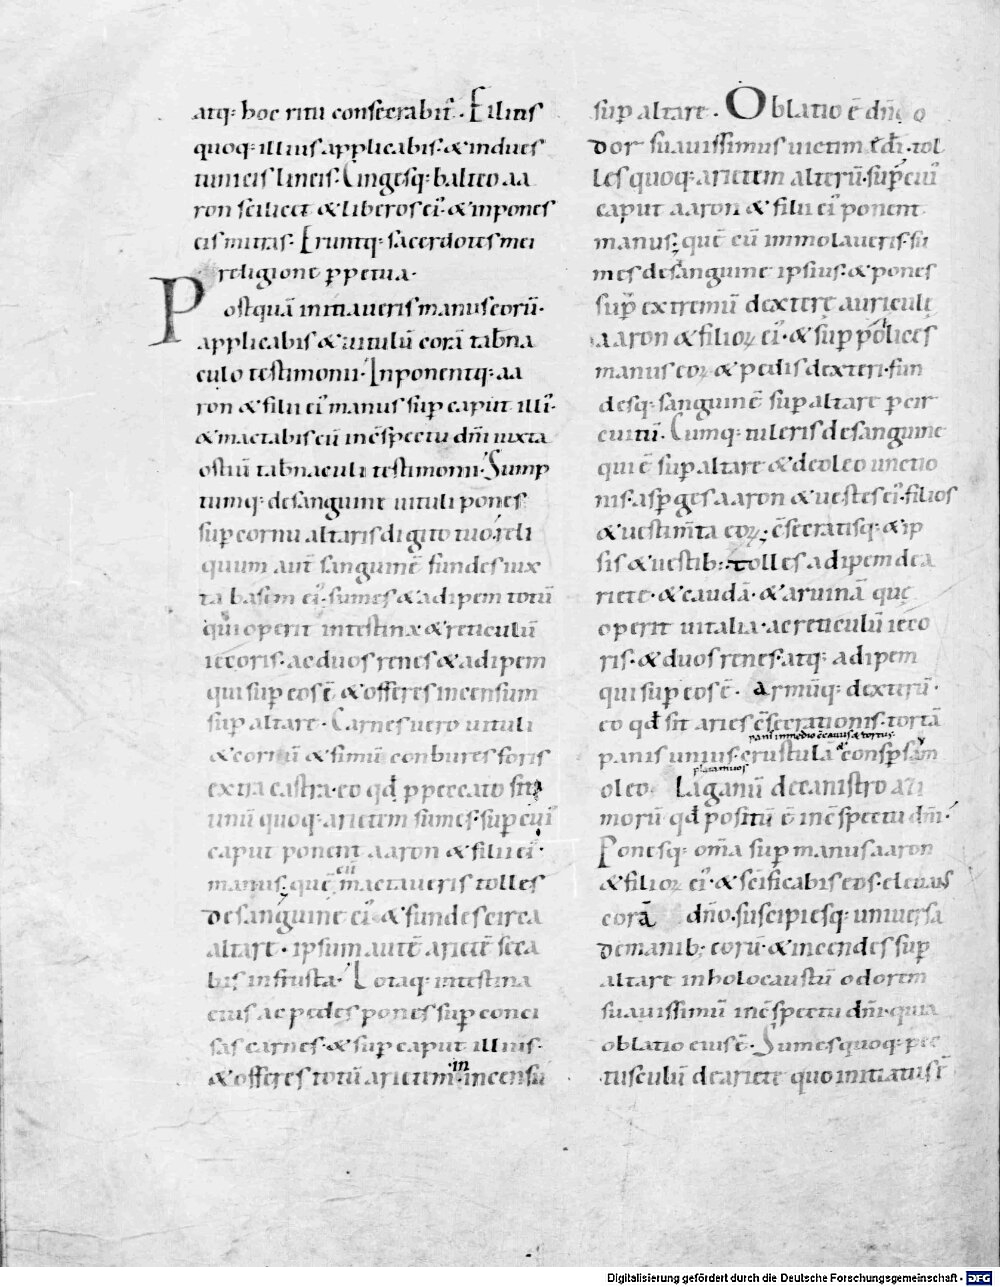 atq: hoc ritu consecrabit̅. Filius
quoq: illius applicabis: & indues
tunicis lineis. Cingesq: balteo aa
ron scilicet & liberos ei'. & inpones
eis mitras. Eruntq: sacerdotes mei
religione p̲petua.
Postquā initiaueris manus eorū.
applicabis & uitulū corā tab̅na
culo testimonii. Inponentq: aa
ron & filii ei' manus sup̲ caput illi'.
& mactabis eū in c̅spectu dn̅i iuxta
ostiū tab̅naculi testimonii. Sump
tumq: de sanguine uituli pones
sup̲ cornu altaris digito tuo. reli
quum aut̅ sanguinē fundes iux
ta basem ei'. sumes & adipem totū
qui operit intestina & reticulū
iecoris. ac duos renes & adipem
qui sup̲ eos ē. & offeres incensum
sup̲ altare. Carnes uero uituli
& coriū & fimū conbures foris
extra castra. eo qd̅ p̲ peccato sit
unū quoq: arietem sumes. sup̲ cui'
caput ponent aaron & filii ei'.
manus; quē cū mactaueris tolles
de sanguine ei' & fundes circa
altare. ipsum autē arietē seca
bis in frusta. Lotaq: intestina
eius ac pedes pones sup̲ conci
sas carnes. & sup̲ caput illius.
& offeres totū arietem. in incensū
sup̲ altare. Oblatio ē dn̅o o
dor suauissimus uictim̅e dn̅i. tol
les quoq: arietem alterū. sup̲ cui'
caput aaron & filii ei' ponent
manus; quē cū immolaueris. su
mes de sanguine ipsius. & pones
sup̲ extremū dextere auricule
aaron & filioꝝ ei'. & sup̲ pollices
manus eoꝝ & pedis dexteri. fun
desq: sanguinē sup̲ altare p̲ cir
cuitū. Cumq: tuleris de sanguine
qui ē sup̲ altare & de oleo unctio
nis. asp̲ges aaron & uestes ei'. filios
& uestim̅ta eoꝝ; c̅secratisq: & ip
sis & uestib:. tolles adipem de a
riete. & caudā. & aruinā que
operit uitalia. ac reticulū ieco
ris. & duos renes. atq: adipem
qui sup̲ eos ē. armūq: dexterū.
eo qd̅ sit aries c̅secrationis. tortā
pani in medio c̅cauus & tortus.
panis unius. crustulā consp̲sam
oleo. Laganū de canistro azi
morū qd̅ positū ē in c̅spectu dn̅i.
Ponesq: om̅a sup̲ manus aaron
& filioꝝ ei'. & sc̅ificabis eos. eleuans
corā dn̅o. suscipiesq: uniuersa
de manib; eorū. & incendes sup̲
altare in holocaustū odorem
suauissimū in c̅spectu dn̅i. quia
oblatio eius ē. Sumes quoq: pec
tusculū de ariete quo initiatus ē
Digitalisierung gefördert durch die Deutsche Forschungsgemeinschaft - DFG